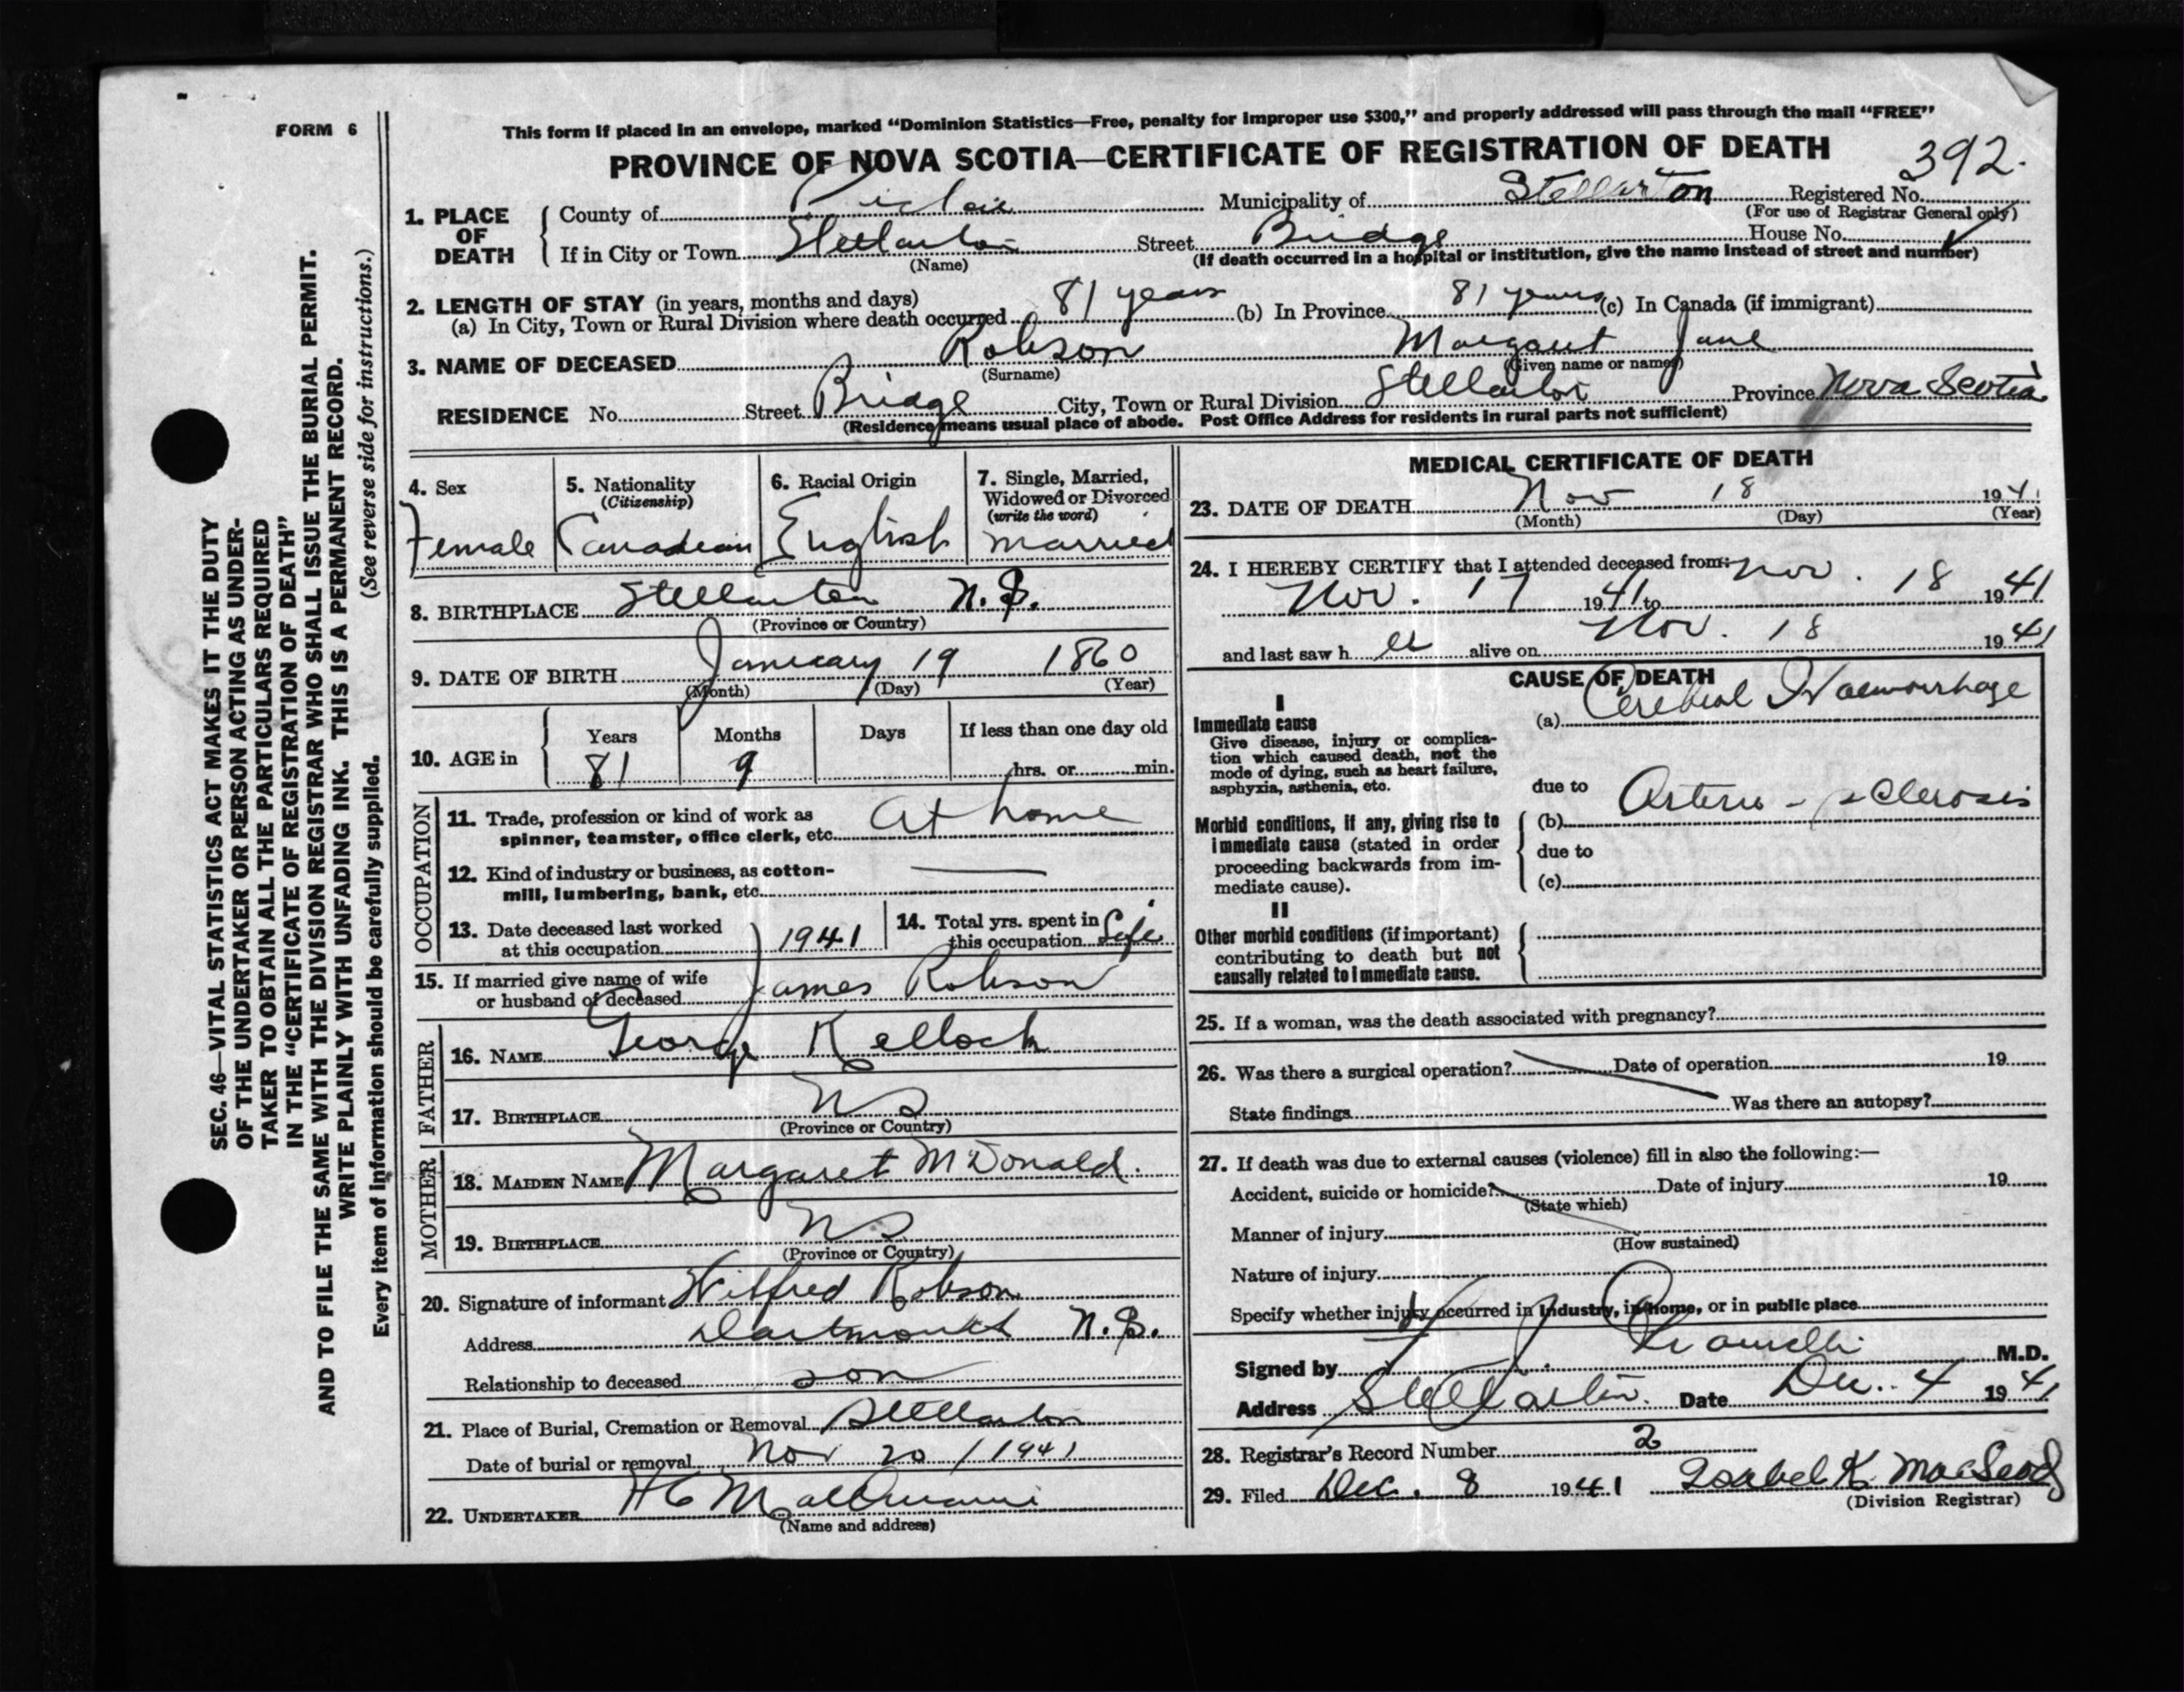 FORM 6
This form if placed in an envelope, marked “Dominion Statistics—Free, penalty for improper use $300,” and properly addressed will pass through the mail “FREE”
PROVINCE OF NOVA SCOTIA—CERTIFICATE OF REGISTRATION OF DEATH
392.
1. PLACE OF DEATH
County of Pictou Municipality of Stellarton Registered No.
(For use of Registrar General only)
If in City or Town Stellarton Street Bridge House No.
(Name) (If death occurred in a hospital or institution, give the name instead of street and number)
2. LENGTH OF STAY (in years, months and days)
(a) In City, Town or Rural Division where death occurred 81 years (b) In Province 81 years (c) In Canada (if immigrant)
3. NAME OF DECEASED Robson Margaret Jane
(Surname) (Given name or names)
RESIDENCE No. Street Bridge City, Town or Rural Division Stellarton Province Nova Scotia
(Residence means usual place of abode. Post Office Address for residents in rural parts not sufficient)
4. Sex
Female
5. Nationality
(Citizenship)
Canadian
6. Racial Origin
English
7. Single, Married,
Widowed or Divorced
(write the word)
married
8. BIRTHPLACE Stellarton N.S.
(Province or Country)
9. DATE OF BIRTH January 19 1860
(Month) (Day) (Year)
10. AGE in
Years Months Days If less than one day old
81 9 hrs. or min.
OCCUPATION
11. Trade, profession or kind of work as
spinner, teamster, office clerk, etc. At home
12. Kind of industry or business, as cotton-
mill, lumbering, bank, etc. —
13. Date deceased last worked
at this occupation 1941
14. Total yrs. spent in
this occupation Life
15. If married give name of wife
or husband of deceased James Robson
FATHER
16. NAME George Kellock
17. BIRTHPLACE NS
(Province or Country)
MOTHER
18. MAIDEN NAME Margaret McDonald.
19. BIRTHPLACE NS
(Province or Country)
20. Signature of informant Wilfred Robson
Address Dartmouth N.S.
Relationship to deceased son
21. Place of Burial, Cremation or Removal Stellarton
Date of burial or removal Nov 20 / 1941
22. UNDERTAKER
(Name and address)
MEDICAL CERTIFICATE OF DEATH
23. DATE OF DEATH Nov 18 1941
(Month) (Day) (Year)
24. I HEREBY CERTIFY that I attended deceased from:
Nov. 17 1941 to Nov. 18 1941
and last saw h er alive on Nov. 18 1941
CAUSE OF DEATH
I
Immediate cause
Give disease, injury or complica-
tion which caused death, not the
mode of dying, such as heart failure,
asphyxia, asthenia, etc.
(a) Cerebral Haemorrhage
due to
Morbid conditions, if any, giving rise to
immediate cause (stated in order
proceeding backwards from im-
mediate cause).
(b) Arterio-sclerosis
due to
(c)
II
Other morbid conditions (if important)
contributing to death but not
causally related to immediate cause.
25. If a woman, was the death associated with pregnancy?
26. Was there a surgical operation? Date of operation 19
State findings Was there an autopsy?
27. If death was due to external causes (violence) fill in also the following:—
Accident, suicide or homicide? Date of injury 19
(State which)
Manner of injury
(How sustained)
Nature of injury
Specify whether injury occurred in industry, in home, or in public place
Signed by M.D.
Address Stellarton. Date Dec. 4 1941
28. Registrar's Record Number 2
29. Filed Dec. 8 1941 Isabel K. MacLeod
(Division Registrar)
SEC. 46—VITAL STATISTICS ACT MAKES IT THE DUTY
OF THE UNDERTAKER OR PERSON ACTING AS UNDER-
TAKER TO OBTAIN ALL THE PARTICULARS REQUIRED
IN THE “CERTIFICATE OF REGISTRATION OF DEATH”
AND TO FILE THE SAME WITH THE DIVISION REGISTRAR WHO SHALL ISSUE THE BURIAL PERMIT.
WRITE PLAINLY WITH UNFADING INK. THIS IS A PERMANENT RECORD.
(See reverse side for instructions.)
Every item of information should be carefully supplied.